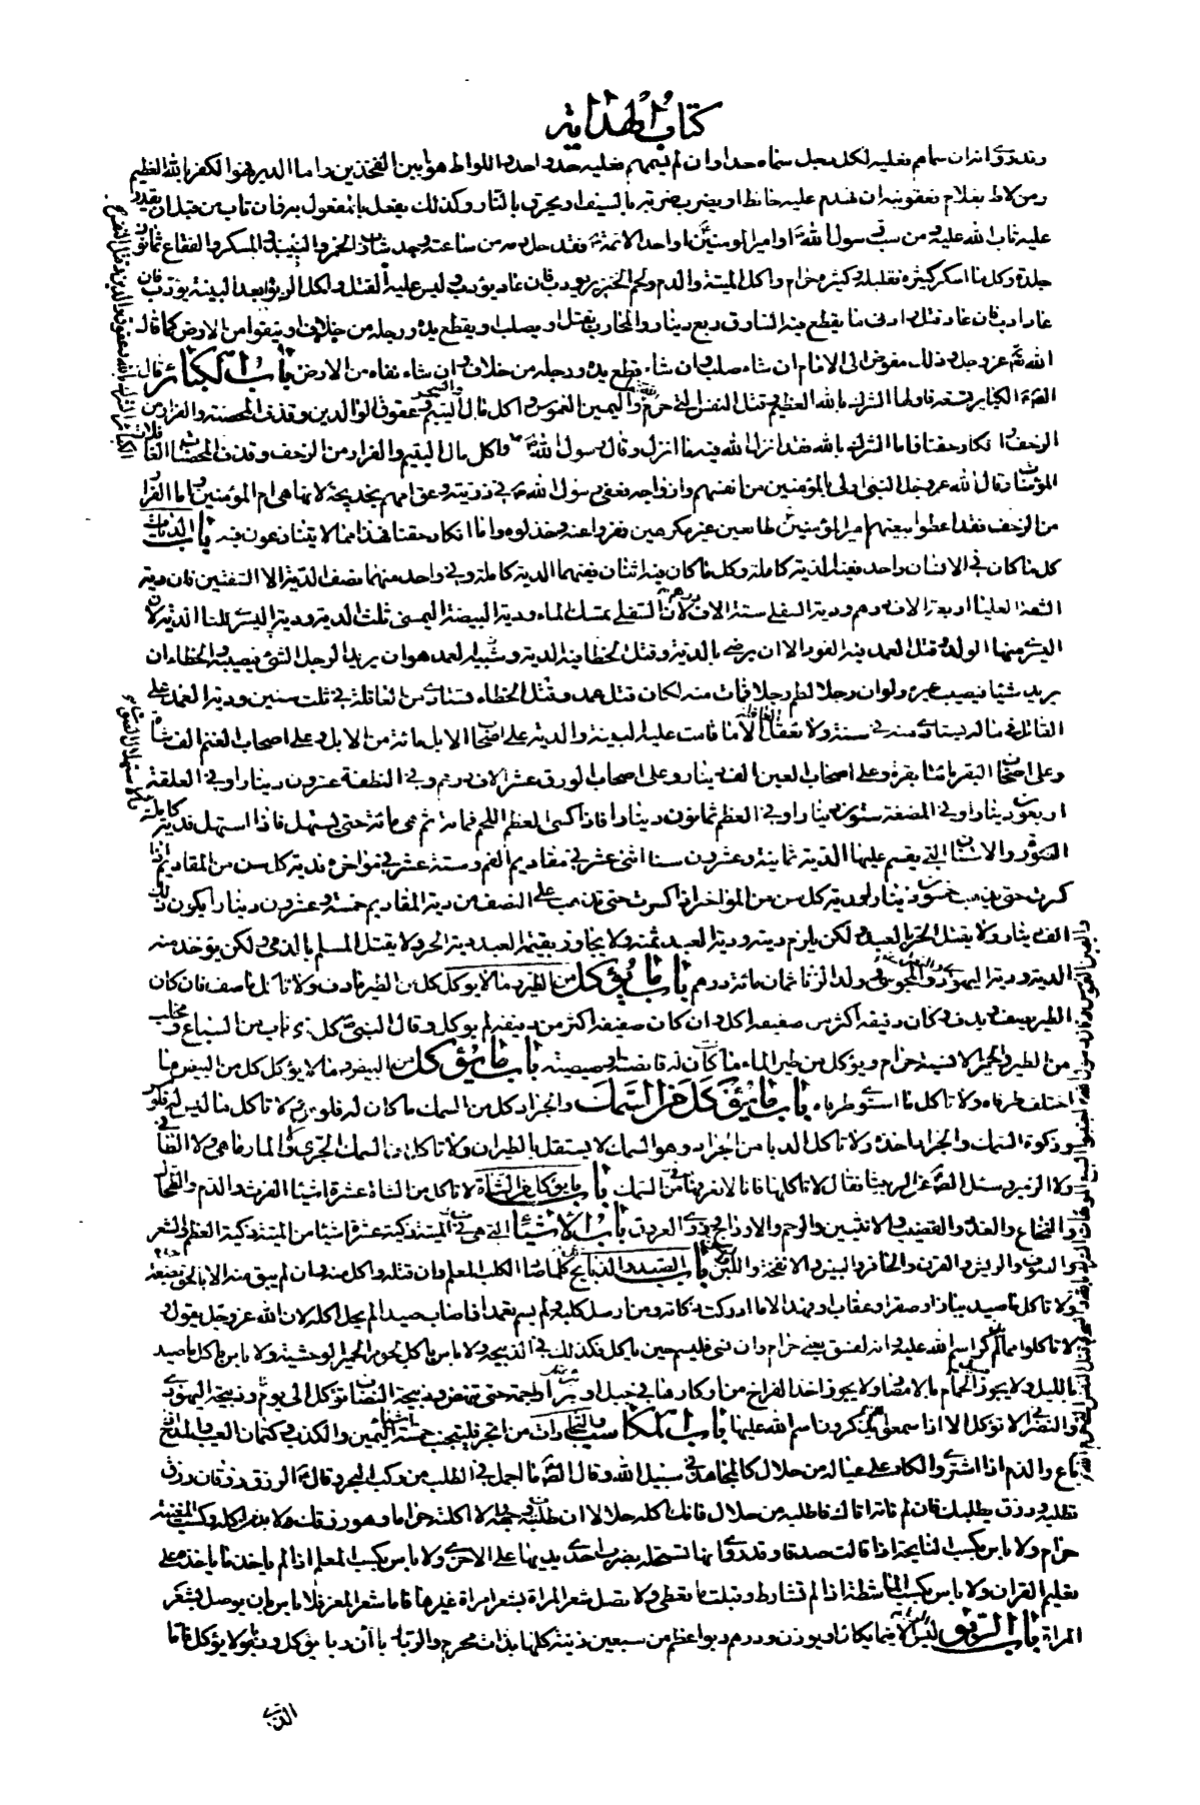 كتاب الهداية
وقد روى انه ان سماهم فعليه لكل رجل سماه حدا وان لم يسمهم فعليه حد واحد واللواط هو ما بين الفخذين واما الدبر فهو الكفر بالله العظيم
ومن لاط بغلام فعقوبته ان يهدم عليه حائط او يضرب ضربة بالسيف او يحرق بالنار وكذلك يفعل بالمفعول به فان تاب من قبل ان يقدر
عليه تاب الله عليه ومن سب رسول الله او امير المؤمنين او احد الائمة فقد حل دمه من ساعته وحد شارب الخمر والنبيذ والمسكر والفقاع ثمانون
جلدة وكل ما اسكر كثيره فقليله وكثيره حرام واكل الميتة والدم ولحم الخنزير يؤدب فان عاد يؤدب وليس عليه القتل ولاكل الربوا بعد البينة يؤدب فان
عاد ادب فان عاد قتل وادنى ما يقطع فيه السارق ربع دينار والمحارب يقتل او يصلب او يقطع يده ورجله من خلاف او ينفوا من الارض كما قال
الله عز وجل وذلك مفوض الى الامام ان شاء صلب وان شاء قطع يده ورجله من خلاف وان شاء نفاه من الارض باب الكبائر قال
الكبائر تسعة فاولها الشرك بالله العظيم وقتل النفس التي حرم الله واليمين الغموس واكل مال اليتيم وعقوق الوالدين وقذف المحصنة والفرار من
الزحف وانكار حقنا فاما الشرك بالله فقد انزل الله فينا ما انزل وقال رسول الله واكل مال اليتيم والفرار من الزحف وقذف المحصنات
المؤمنات وقال الله عز وجل النبى اولى بالمؤمنين من انفسهم وازواجه امهاتهم فعقوا رسول الله في ذريته وعق امهم خديجة لانها هي ام المؤمنين واما الفرار
من الزحف فقد اعطوا بيعتهم امير المؤمنين طائعين غير مكرهين وفروا عنه وخذلوه واما انكار حقنا فهذا مما لا يتنازعون فيه باب الديات
كل ما كان في الانسان واحد ففيه الدية كاملة وكل ما كان فيه اثنان ففيهما الدية كاملة وفي واحد منهما نصف الدية الا الشفتين فان دية
الشفة العليا اربعة الاف درهم ودية السفلى ستة الاف درهم لان السفلى تمسك الماء ودية البيضة اليمنى ثلث الدية ودية اليسرى ثلثا الدية لان
اليسرى منها الولد وقتل العمد فيه القود الا ان يرضى بالدية وقتل الخطا فيه الدية وشبيه العمد هو ان يريد الرجل الشئ فيصيبه والخطاء ان
يريد شيئا فيصيب غيره ولو ان رجلا لطم رجلا فمات منه لكان قتل عمد وقتل الخطاء تستادى من العاقلة في ثلث سنين ودية العمد على
القاتل في ماله يستادى منه في سنة ولا تعقل العاقلة الا ما قامت عليه البينة والدية على اصحاب الابل مائة من الابل وعلى اصحاب الغنم الف شاة
وعلى اصحاب البقر مائتا بقرة وعلى اصحاب العين الف دينار وعلى اصحاب الورق عشرة الاف درهم وفي النطفة عشرون دينارا وفي العلقة
اربعون دينارا وفي المضغة ستون دينارا وفي العظم ثمانون دينارا فاذا كسى العظم اللحم فمائة ثم هي مائة حتى يستهل فاذا استهل فديته كاملة
والاسنان التي يقسم عليها الدية ثمانية وعشرون سنا اثنى عشر في مقاديم الفم وستة عشر في مواخره فدية كل سن من المقاديم اذا
كسرت حتى يذهب خمسون دينارا ودية كل سن من المواخر اذا كسرت حتى تذهب على النصف من دية المقاديم خمسة وعشرون دينارا يكون ذلك
الف دينار ولا يقتل الحر بالعبد ولكن يلزم ديته ودية العبد ثمنه ولا يجاوز بقيمة العبد دية الحر ولا يقتل المسلم بالذمي ولكن يؤخذ منه
الدية ودية اليهودي والمجوسى وولد الزنا ثمان مائة درهم باب ما يؤكل من الطير وما لا يؤكل كل من الطير ما دف ولا تاكل ما صف فان كان
الطير يصف ويدف وكان دفيفه اكثر من صفيفه اكل وان كان صفيفه اكثر من دفيفه لم يؤكل وقال النبي كل ذي ناب من السباع ومخلب
من الطير والحمر الانسية حرام ويؤكل من طير الماء ما كان له قانصة او صيصية باب ما يؤكل من البيض وما لا يؤكل كل من البيض ما
اختلف طرفاه ولا تاكل ما استوى طرفاه باب ما يؤكل من السمك والجراد كل من السمك ما كان له فلوس ولا تاكل ما ليس له فلوس
وذكوة السمك والجراد اخذه ولا تاكل الدبا من الجراد وهو الذي لا يستقل بالطيران ولا تاكل من السمك الجرى ولا المارماهى ولا الطافى
ولا الزمير وسئل الصادق عن الربيثا فقال لا تاكلها فانا لا نعرفها في السمك باب ما يؤكل من الشاة لا تاكل من الشاة عشرة اشياء الفرث والدم والطحال
والنخاع والغدد والقضيب والانثيين والرحم والحياء والاوداج باب الاشياء التي هي من الميتة ذكية عشرة اشياء من الميتة ذكية العظم والشعر
والصوف والريش والقرن والحافر والبيض والانفحة واللبن والسن باب الصيد والذبايح كل ما صاد الكلب المعلم وان قتله واكل منه وان لم يبق منه الا بضعة
ولا تاكل ما صيد بباز او صقر او عقاب او فهد الا ما ادركت ذكاته ومن ارسل كلبه ولم يسم تعمدا فاصاب صيدا لم يحل اكله لان الله عز وجل يقول
لا تاكلوا مما لم يذكر اسم الله عليه وانه لفسق يعني حرام وان نسي فليسم حين ياكل وكذلك في الذبيحة ولا باس باكل لحوم الحمر الوحشية ولا باس باكل ما صيد
بالليل ولا يجوز صيد الحمام بالامصار ولا يجوز اخذ الفراخ من اوكارها في جبل او بئر او اجمة حتى تنهض وذبيحة النصاب تؤكل الى يوم وذبيحة اليهودى
والنصراني لا تؤكل الا اذا سمعوهم يذكرون اسم الله عليها باب المكاسب والتجارات من اتجر فليجتنب خمسة اشياء اليمين والكذب وكتمان العيب والمدح اذا
باع والذم اذا اشترى والكاد على عياله من حلال كالمجاهد في سبيل الله وقال الصادق ما اجمل في الطلب من ركب البحر وقال الرزق رزقان رزق
تطلبه ورزق يطلبك فان لم تاته اتاك فاطلبه من حلال فانك اكلته حلالا ان طلبته من وجهه والا اكلته حراما وهو رزقك ولا بد من اكله وكسب المغنية
حرام ولا باس بكسب النايحة اذا قالت صدقا وقد روى انها تستحله بضرب احدى يديها على الاخرى ولا باس بكسب المعلم اذا لم ياخذ ما ياخذه على
تعليم القران ولا باس بكسب الماشطة اذا لم تشارط وقبلت ما تعطى ولا تصل شعر المراة بشعر امراة غيرها فاما شعر المعز فلا باس بان يوصل بشعر
المراة باب الربو ليس الربا الا فيما يكال او يوزن ودرهم ربوا اعظم من سبعين زنية كلها بذات محرم والربا رباان ربا يؤكل وربا لا يؤكل فاما
الذي